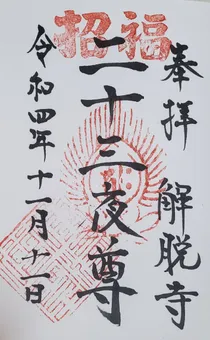 招福
奉拝
解脱寺
二十三夜尊
令和四年十一月十一日